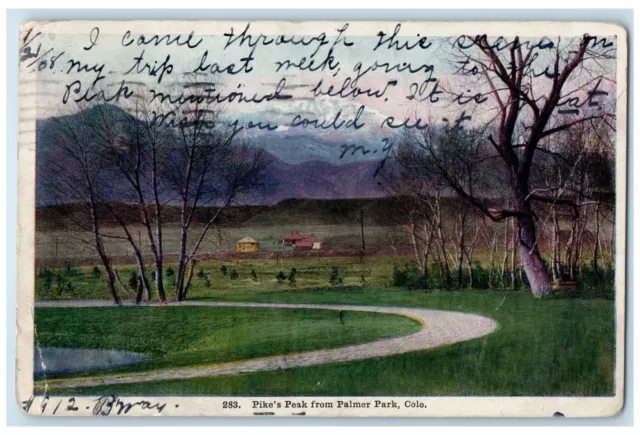 I came through this scene on
my trip last week, going to the
Peak mentioned below. It is great
Wish you could see it
M.Y.
283. Pike's Peak from Palmer Park, Colo.